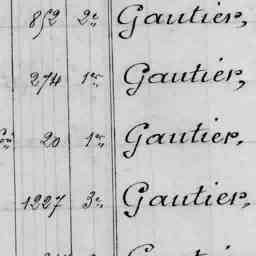 852 2e Gautier,
274 1er Gautier,
20 1er Gautier,
1227 3e Gautier,